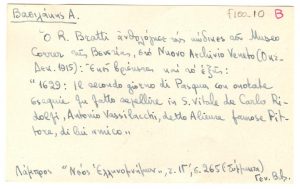 Βασιλάκης Α. F100.10 B
Ο R. Bratti ἀνθολόγησε τοὺς κώδικες τοῦ Museo
Correr τῆς Βενετίας, στὸ Nuovo Archivio Veneto
Δεκ. 1915): Ἐκεῖ βρίσκεται καὶ τὸ ἑξῆς:
"1629: Il secondo giorno di Pasqua con onorate
esequie fu fatto sepellire in S. Vitale da Carlo Ri-
dolfi, Antonio Vassilacchi, detto Aliense famoso Pit-
tore, di lui amico"
Λάμπρος "Νέος Ἑλληνομνήμων", σ. 265 (Σύμμικτα)